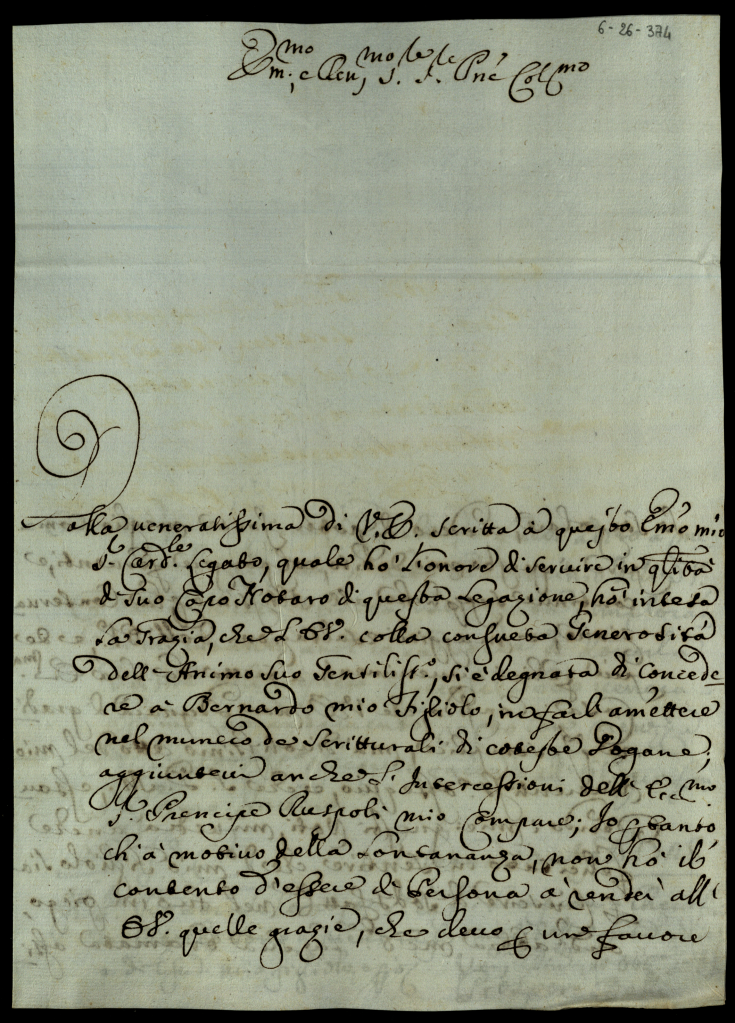 6-26-374
Em:mo e Rev:mo S.re S.re Pñe Col:mo
Dalla veneratissima di V.E. scritta à questo Emo mio
S.r Card.le Legato, quale hò l'onore di servire in qltà
di suo Capo Notaro di questa Legazione, hò intesa
la Grazia, che l'E.V. colla consueta Generosità
dell'Animo suo Gentiliss.o, si è degnata di concede-
re à Bernardo mio Figliolo, in farlo amettere
nel numero de Scritturali di coteste Dogane,
aggiuntevi anche l'Intercessioni dell'Ecc.mo
S.r Prencipe Ruspoli mio Compare; Io p tanto
ch'à motivo della Lontananza, non hò il
contento d'essere di Persona à render all'
E.V. quelle grazie, che devo p un favore